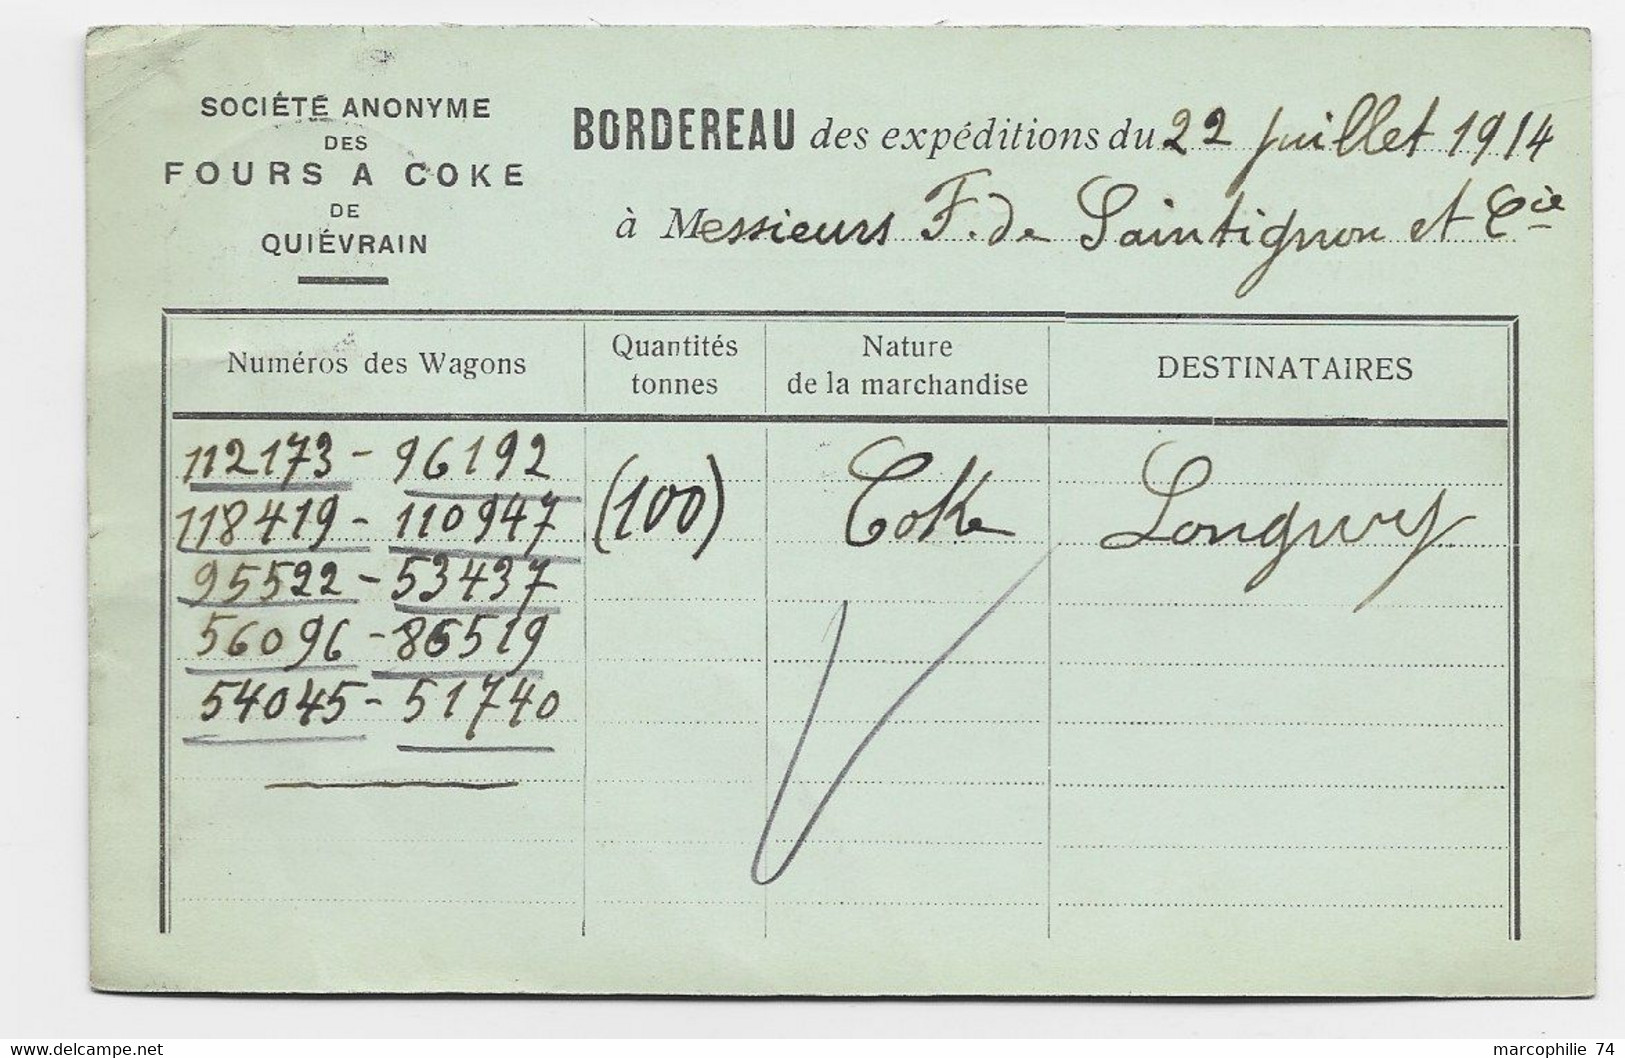 SOCIÉTÉ ANONYME
DES
FOURS A COKE
DE
QUIÉVRAIN
BORDEREAU des expéditions du 22 juillet 1914
à Messieurs F. de Saintignon et Cie
Numéros des Wagons
Quantités tonnes
Nature de la marchandise
DESTINATAIRES
112173 - 96192
118419 - 110947 (100) Coke Longwy
95522 - 53437
56096 - 86519
54045 - 51740
marcophilie 74